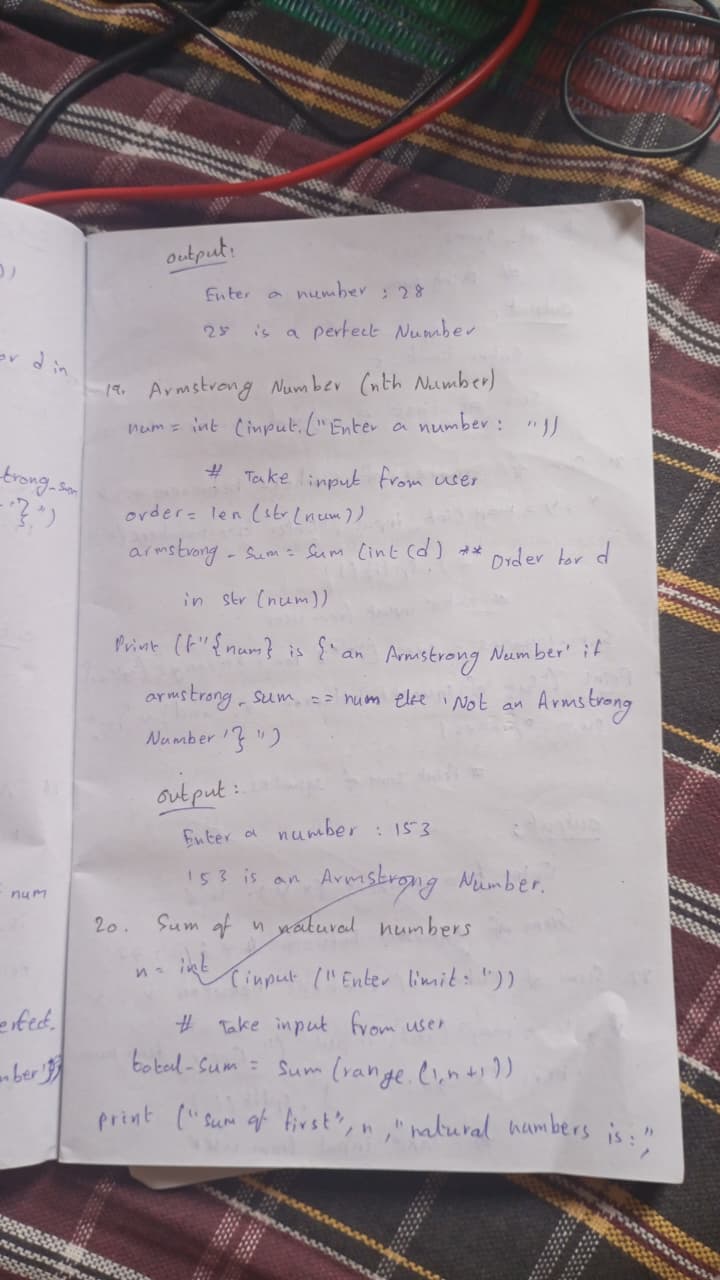 output:
Enter a number : 28
28 is a perfect Number
19. Armstrong Number (nth Number)
num = int (input ("Enter a number : "))
# Take input from user
order = len (str (num))
armstrong_sum = sum (int (d) ** order for d
in str (num))
Print (f"{num} is {'an Armstrong Number' if
armstrong_sum == num else 'Not an Armstrong
Number '} ")
output :
Enter a number : 153
153 is an Armstrong Number.
20. Sum of n natural numbers
n = int (input ("Enter limit: "))
# Take input from user
total_sum = sum (range (1, n+1))
print ("sum of first", n, "natural numbers is:",
d in
trong_sum
'}")
num
erfect.
mber'}